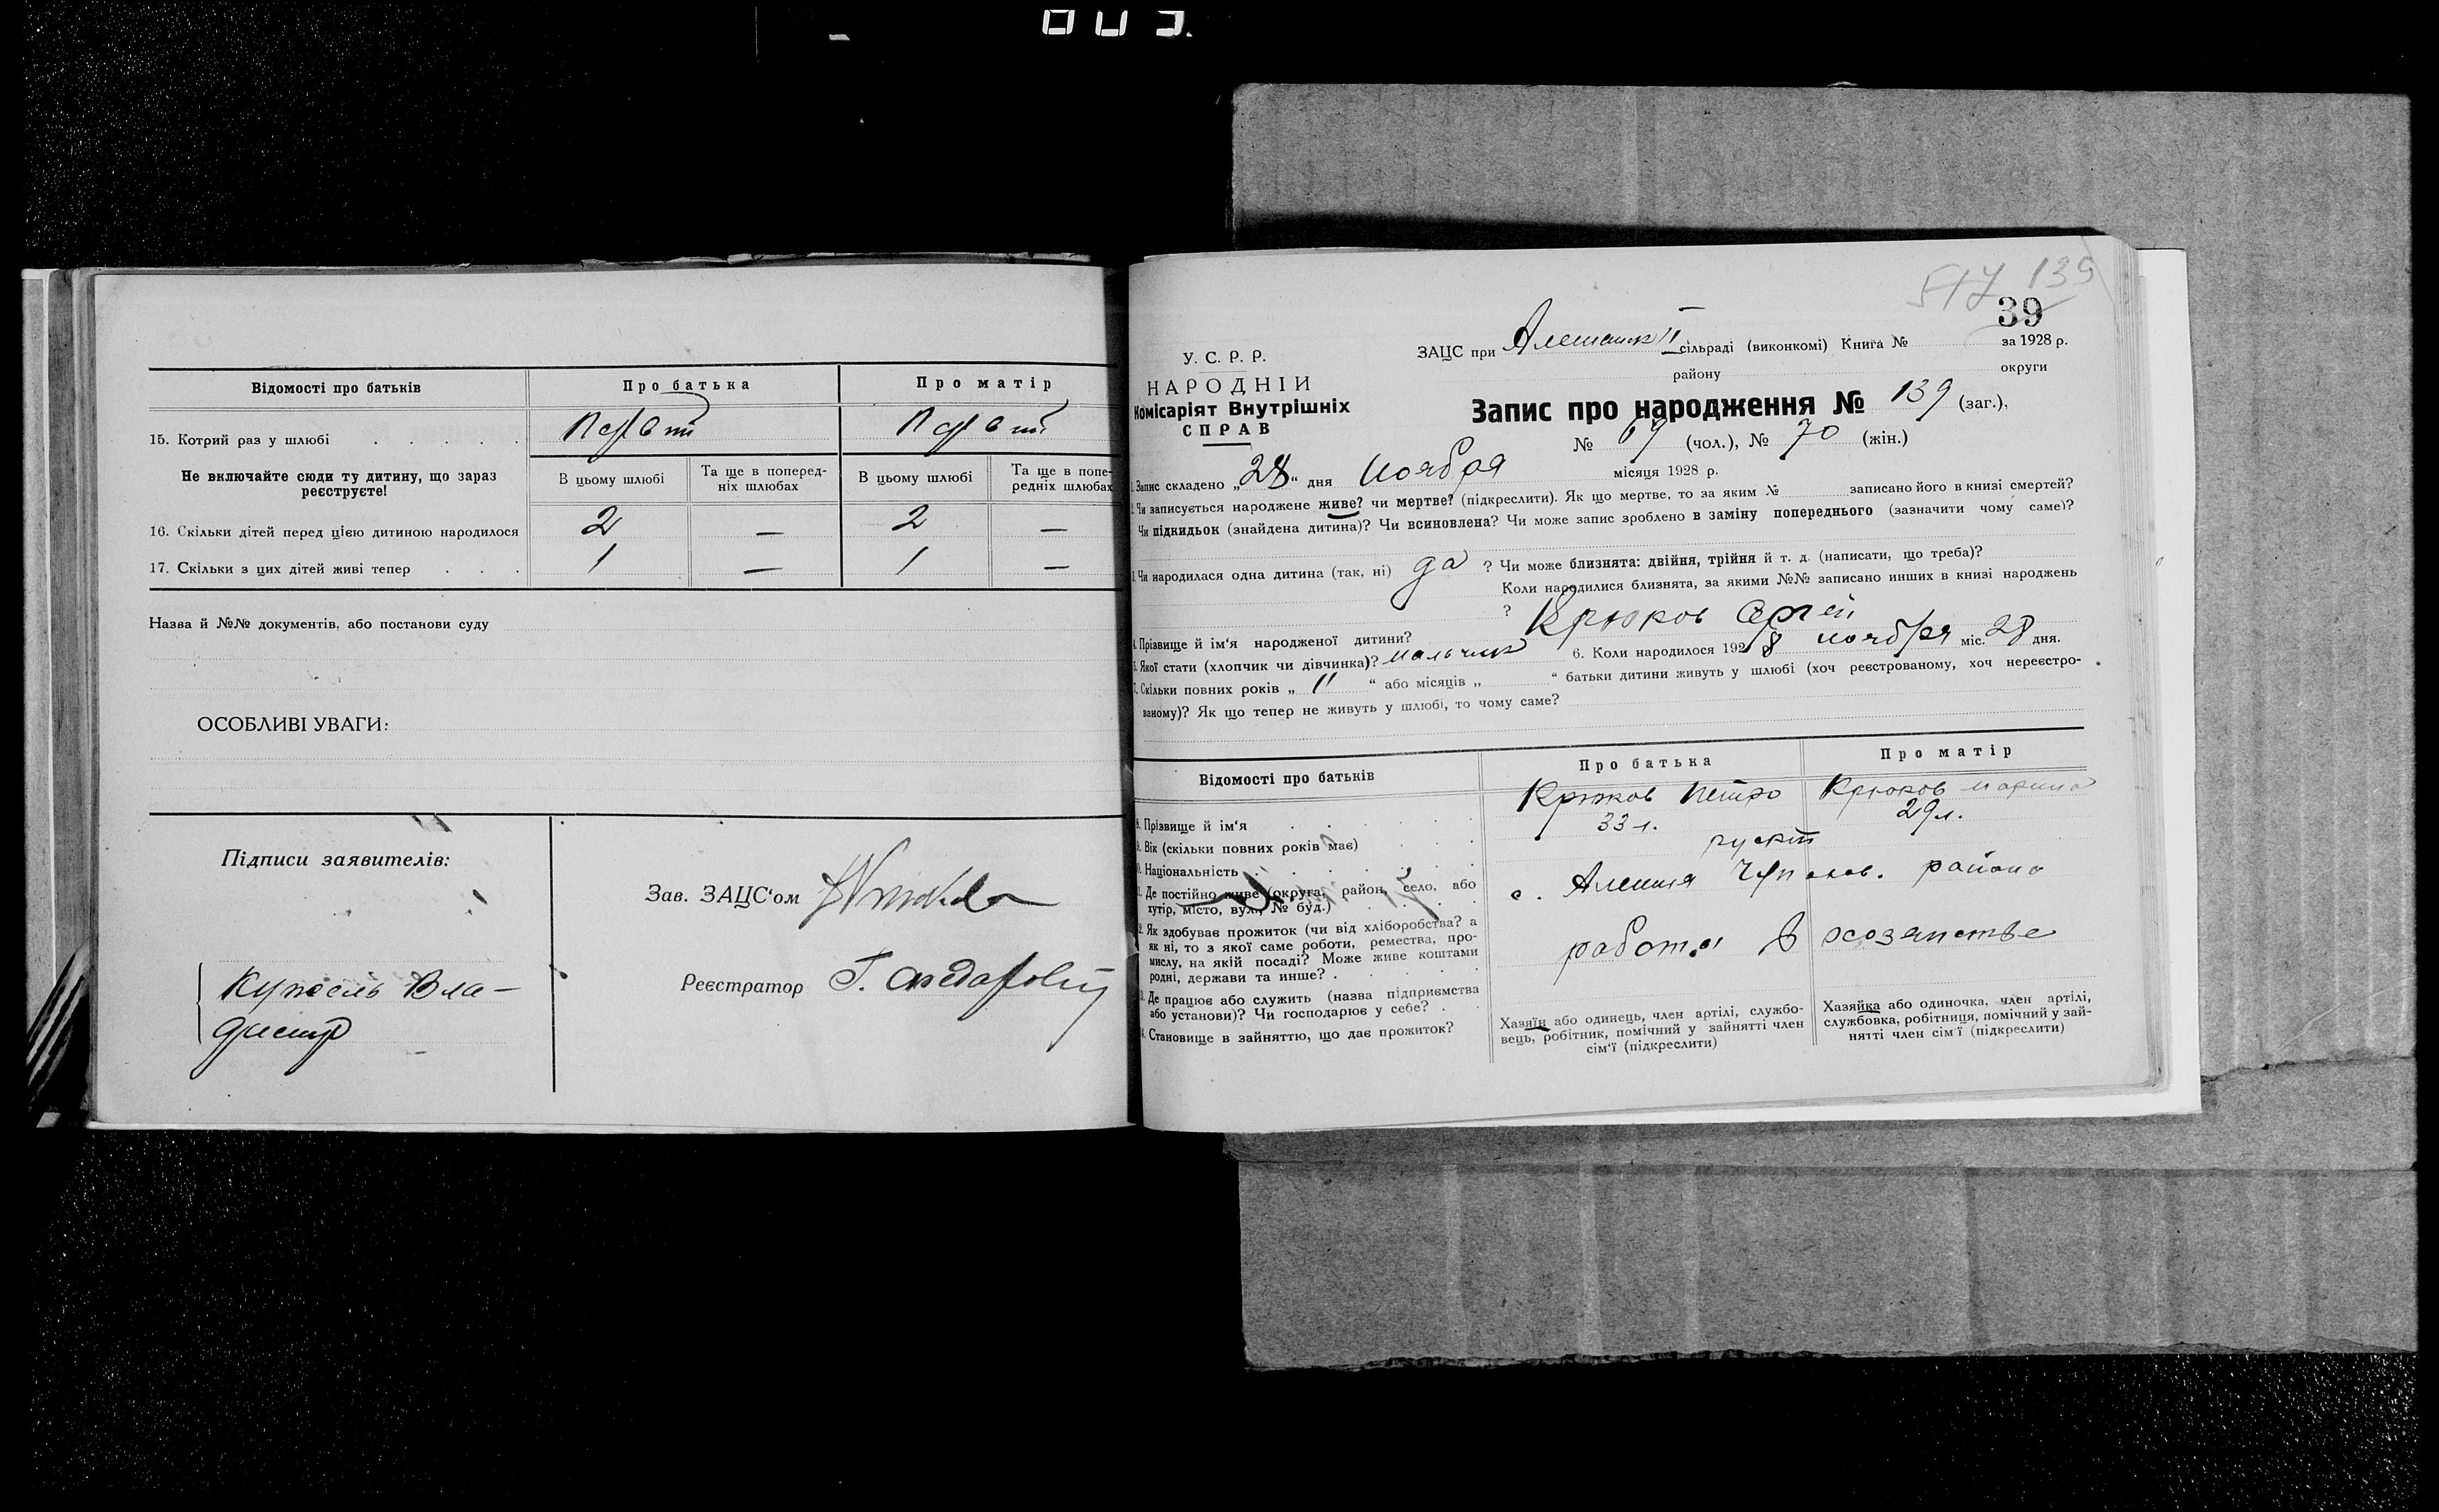 Відомості про батьків
Про батька
Про матір
15. Котрий раз у шлюбі
Не включайте сюди ту дитину, що зараз
реєструєте!
В цьому шлюбі
Та ще в поперед-
ніх шлюбах
В цьому шлюбі
Та ще в попе-
редніх шлюбах
16. Скільки дітей перед цією дитиною народилося 2 — 2 —
17. Скільки з цих дітей живі тепер 1 — 1 —
Назва й №№ документів, або постанови суду
ОСОБЛИВІ УВАГИ:
Підписи заявителів:
Зав. ЗАЦС'ом
Реєстратор
39
139
У. С. Р. Р.
НАРОДНІЙ
Комісаріят Внутрішніх
СПРАВ
ЗАЦС при сільраді (виконкомі) Книга № за 1928 р.
району округи
Запис про народження № 139 (заг.),
№ 69 (чол.), № 70 (жін.)
1. Запис складено „28“ дня Ноября місяця 1928 р.
2. Чи записується народжене живе? чи мертве? (підкреслити). Як що мертве, то за яким № записано його в книзі смертей?
Чи підкидьок (знайдена дитина)? Чи всиновлена? Чи може запис зроблено в заміну попереднього (зазначити чому саме)?
3. Чи народилася одна дитина (так, ні) да ? Чи може близнята: двійня, трійня й т. д. (написати, що треба)?
Коли народилися близнята, за якими №№ записано инших в книзі народжень
?
4. Прізвище й ім'я народженої дитини? Крюков Сергей
5. Якої стати (хлопчик чи дівчинка)? мальчик 6. Коли народилося 1928 ноября міс. 28 дня.
7. Скільки повних років „ 11 “ або місяців „ “ батьки дитини живуть у шлюбі (хоч реєстрованому, хоч нереєстро-
ваному)? Як що тепер не живуть у шлюбі, то чому саме?
Відомості про батьків
Про батька
Про матір
8. Прізвище й ім'я Крюков Петро Крюков
9. Вік (скільки повних років має) 33 л. 29 л.
10. Національність
11. Де постійно живе (округа, район, село, або
хутір, місто, вул., № буд.) с. района
12. Як здобуває прожиток (чи від хліборобства? а
як ні, то з якої саме роботи, ремества, про-
мислу, на якій посаді? Може живе коштами
родні, держави та инше?
в хозяйстве
13. Де працює або служить (назва підприємства
або установи)? Чи господарює у себе?
14. Становище в зайняттю, що дає прожиток?
Хазяїн або одинець, член артілі, службо-
вець, робітник, помічний у зайнятті член
сім'ї (підкреслити)
Хазяйка або одиночка, член артілі,
службовка, робітниця, помічний у зай-
нятті член сім'ї (підкреслити)